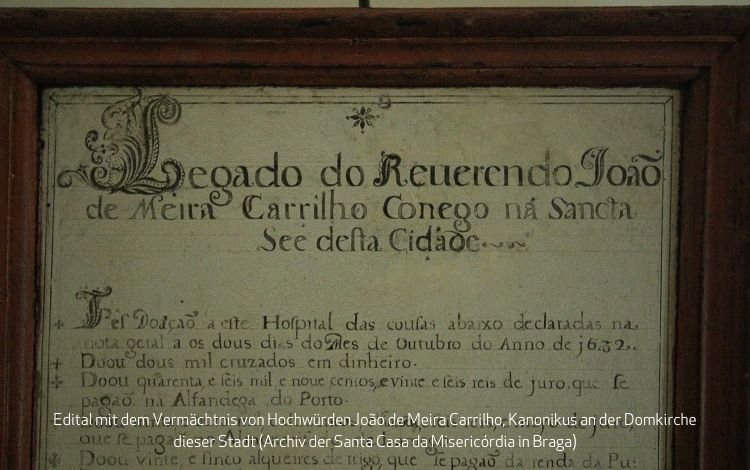 Legado do Reuerendo João
de Meira Carrilho Conego ná Sancta
See desta Cidade
Fes Doação a este Hospital das cousas abaixo declaradas na
nota geral a os dous dias do Mes de Outubro do Anno de j632.
Doou dous mil cruzados em dinheiro.
Doou quarenta e seis mil e noue centos, e vinte e seis reis de juro, que se
pagão na Alfandega do Porto.
que se
Doou vinte, e sinco alqueires de trigo, que se pagão da renda da Pu:
Edital mit dem Vermächtnis von Hochwürden João de Meira Carrilho, Kanonikus an der Domkirche
dieser Stadt (Archiv der Santa Casa da Misericórdia in Braga)